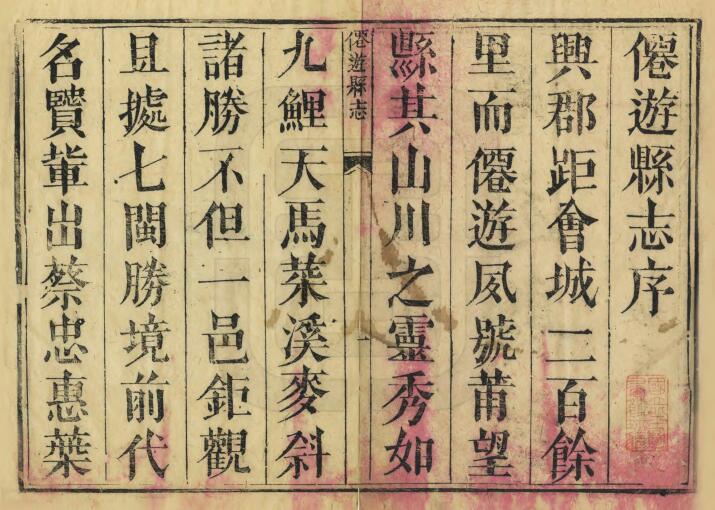 僊遊縣志序
興郡距會城二百餘
里而僊遊夙號莆望
縣其山川之靈秀如
僊遊縣志
一
九鯉天馬菜溪麥斜
諸勝不但一邑鉅觀
且㨿七閩勝境前代
名賢軰出蔡忠惠葉